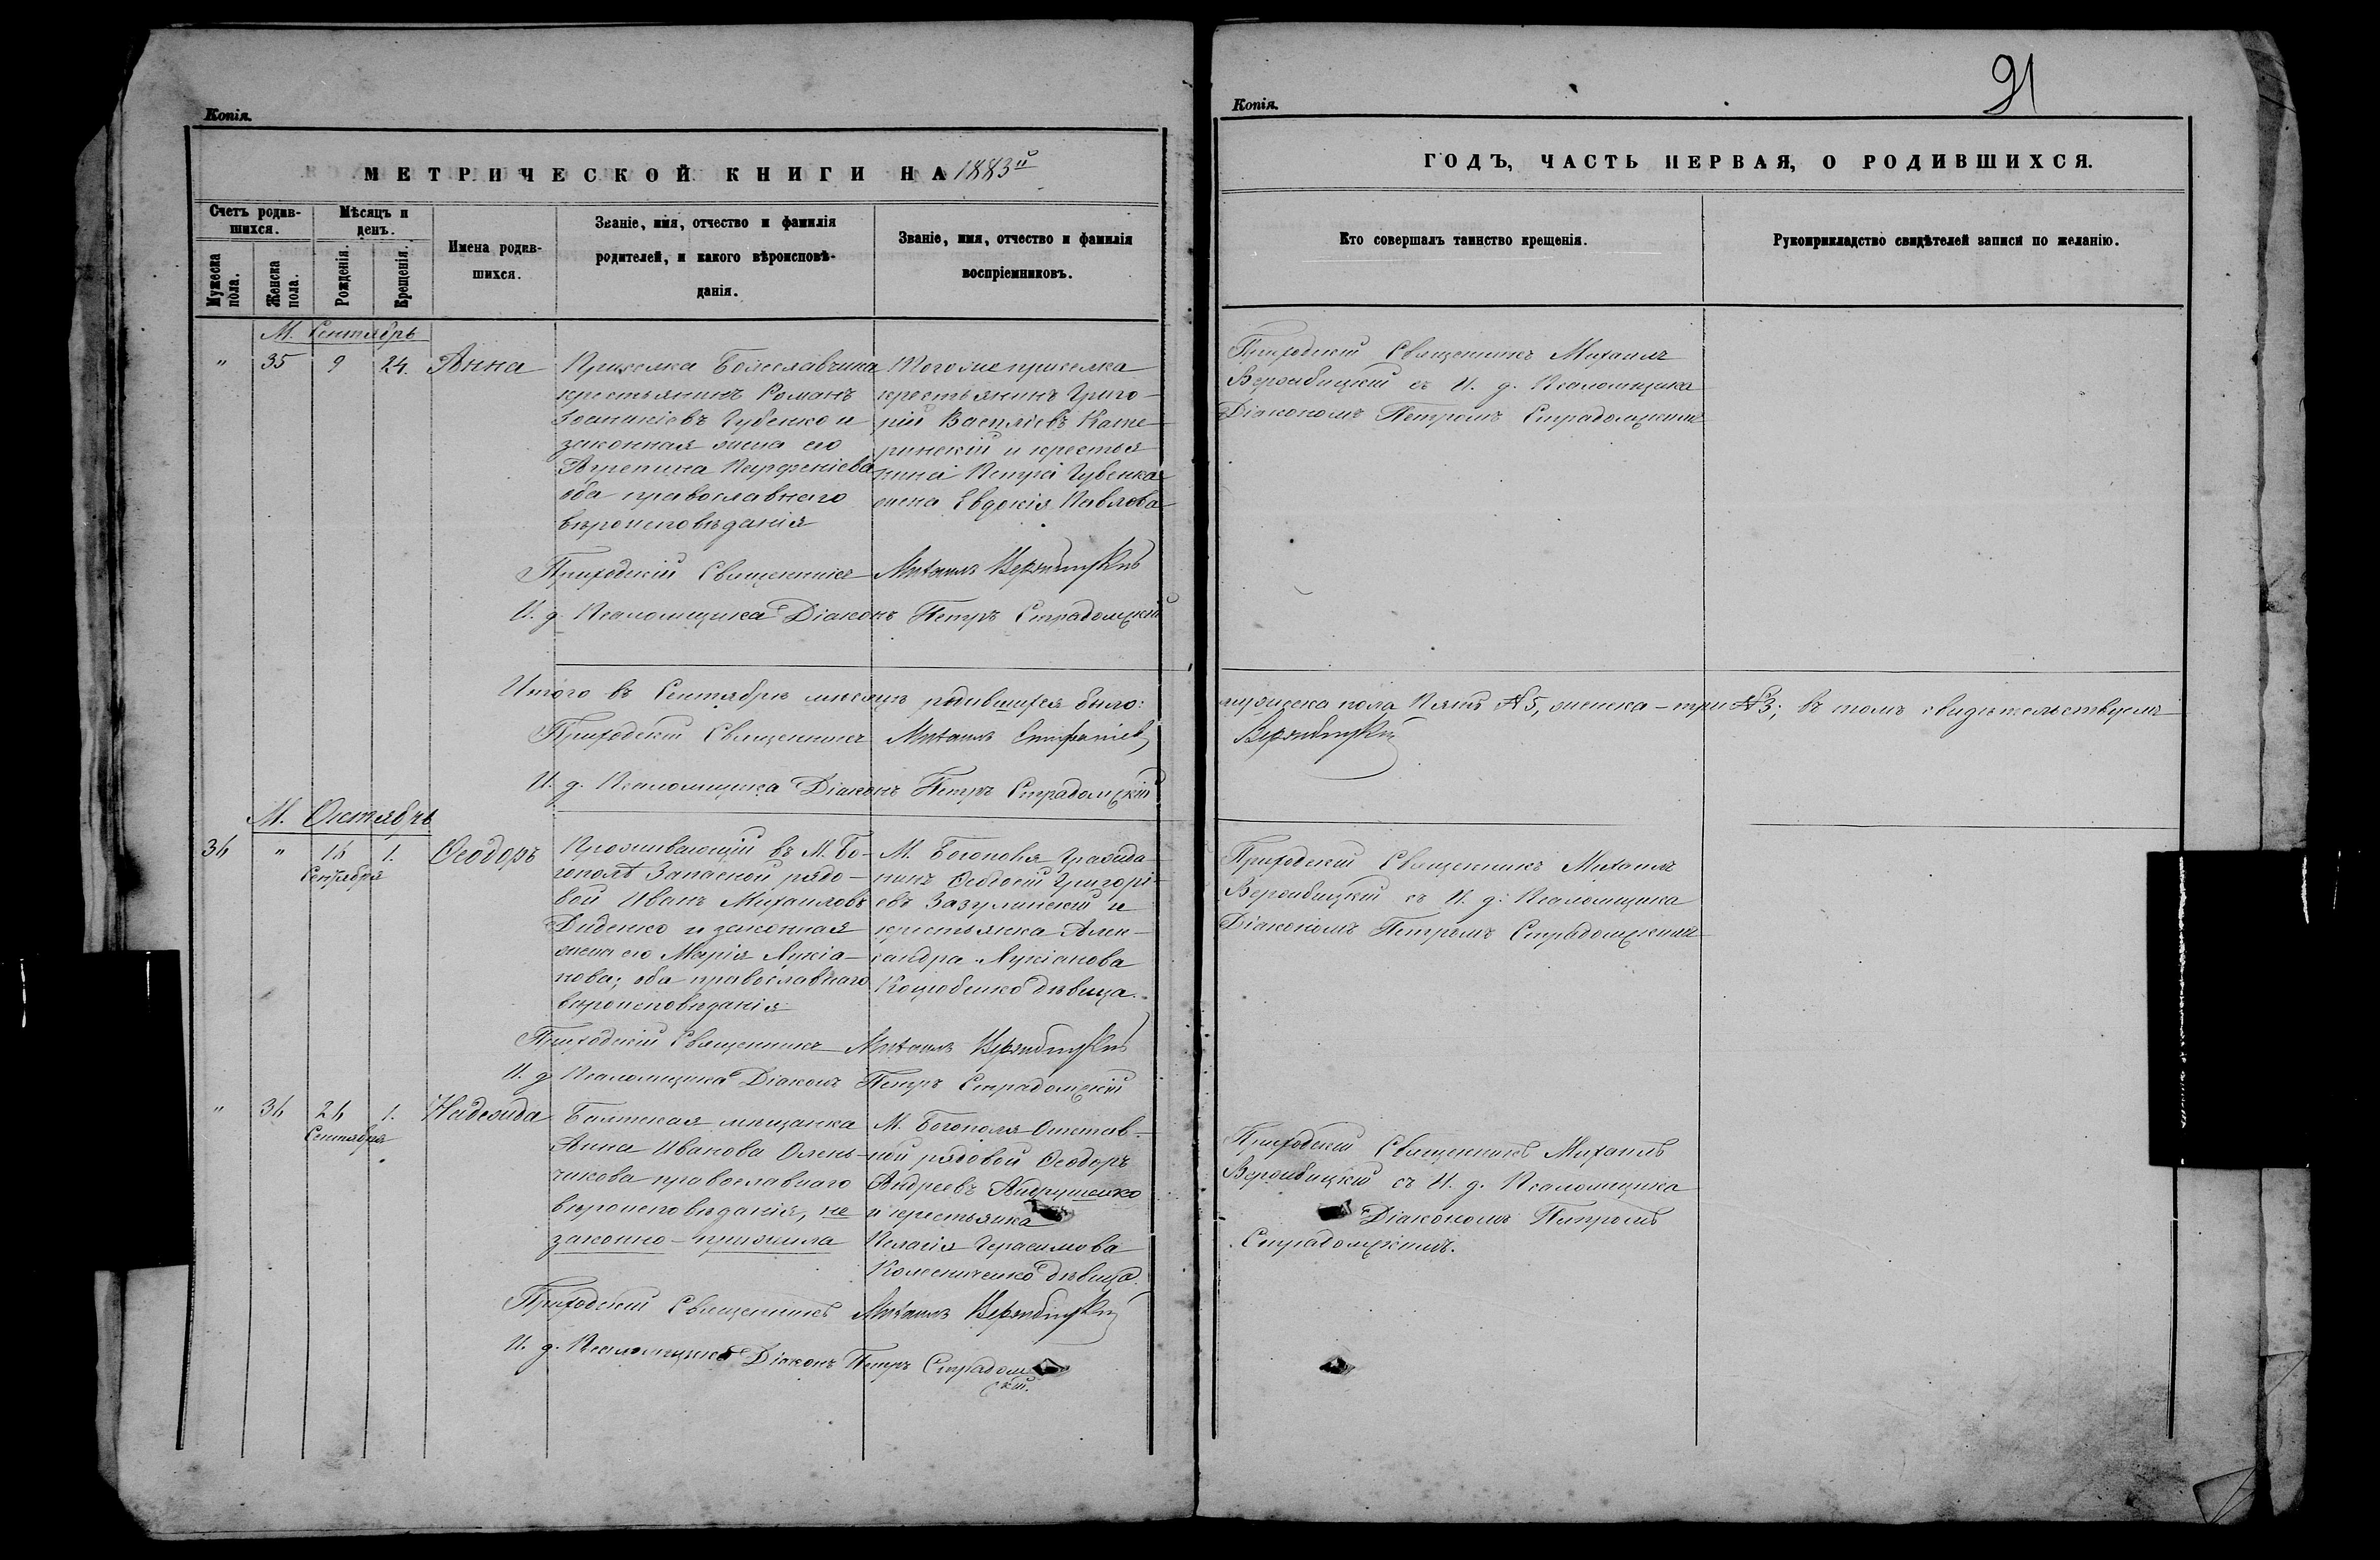 Копія.
МЕТРИЧЕСКОЙ КНИГИ НА 1883й
Счетъ родив-
шихся.
Мѣсяцъ и
день.
Мужеска
пола.
Женска
пола.
Рожденія.
Крещенія.
Имена родив-
шихся.
Званіе, имя, отчество и фамилія
родителей, и какого вѣроисповѣ-
данія.
Званіе, имя, отчество и фамилія
воспріемниковъ.
М. Сентябрь
" 35 9 24. Анна
Приселка Болеславчика
крестьянинъ Романъ
Іоанникіевъ Губенко и
законная жена его
Агрепина Парфеніева
оба православнаго
вѣроисповѣданія
Тогоже приселка
крестьянинъ Григо-
рій Василіевъ Кате-
ринскій и крестья
нина Петра Губенка
жена Евдокія Павлова
Приходскій Священникъ Михаилъ Вержбицкій
И. д. Псаломщика Діаконъ Петръ Страдомскій
Итого въ Сентябрѣ мѣсяцѣ родившихся было:
Приходскій Священникъ Михаилъ
И. д. Псаломщика Діаконъ Петръ Страдомскій
М. Октябрь
36 " 16 1. Ѳеодоръ
Сентября
Проживающій въ М. Бо-
гополѣ Запасной рядо-
вой Иванъ Михаиловъ
Диденко и законная
жена его Марія Лукіа-
нова; оба православнаго
вѣроисповѣданія
М. Богополя Гражда-
нинъ Ѳеодосій Григорі-
евъ Загулинскій и
крестьянка Алек-
сандра Лукіанова
Коцюбенко дѣвица.
Приходскій Священникъ Михаилъ Вержбицкій
И. д. Псаломщика Діаконъ Петръ Страдомскій
" 36 26 1. Надежда
Сентября
Балтская мѣщанка
Анна Иванова Олень-
чикова православнаго
вѣроисповѣданія, не
законно-прижила
М. Богополя Отстав-
ной рядовой Ѳеодоръ
Андреевъ Андрушенко
и крестьянка
Пелагія Герасимова
Колесниченко дѣвица.
Приходскій Священникъ Михаилъ Вержбицкій
И. д. Псаломщика Діаконъ Петръ Страдом
скій.
91
Копія.
ГОДЪ, ЧАСТЬ ПЕРВАЯ, О РОДИВШИХСЯ.
Кто совершалъ таинство крещенія.
Рукоприкладство свидѣтелей записи по желанію.
Приходскій Священникъ Михаилъ
Вержбицкій съ И. д. Псаломщика
Діакономъ Петромъ Страдомскимъ
мужеска пола Пять №5, женска - три №3; въ томъ свидѣтельствуемъ
Вержбицкій
Приходскій Священникъ Михаилъ
Вержбицкій съ И. д. Псаломщика
Діакономъ Петромъ Страдомскимъ
Приходскій Священникъ Михаилъ
Вержбицкій съ И. д. Псаломщика
Діакономъ Петромъ
Страдомскимъ.